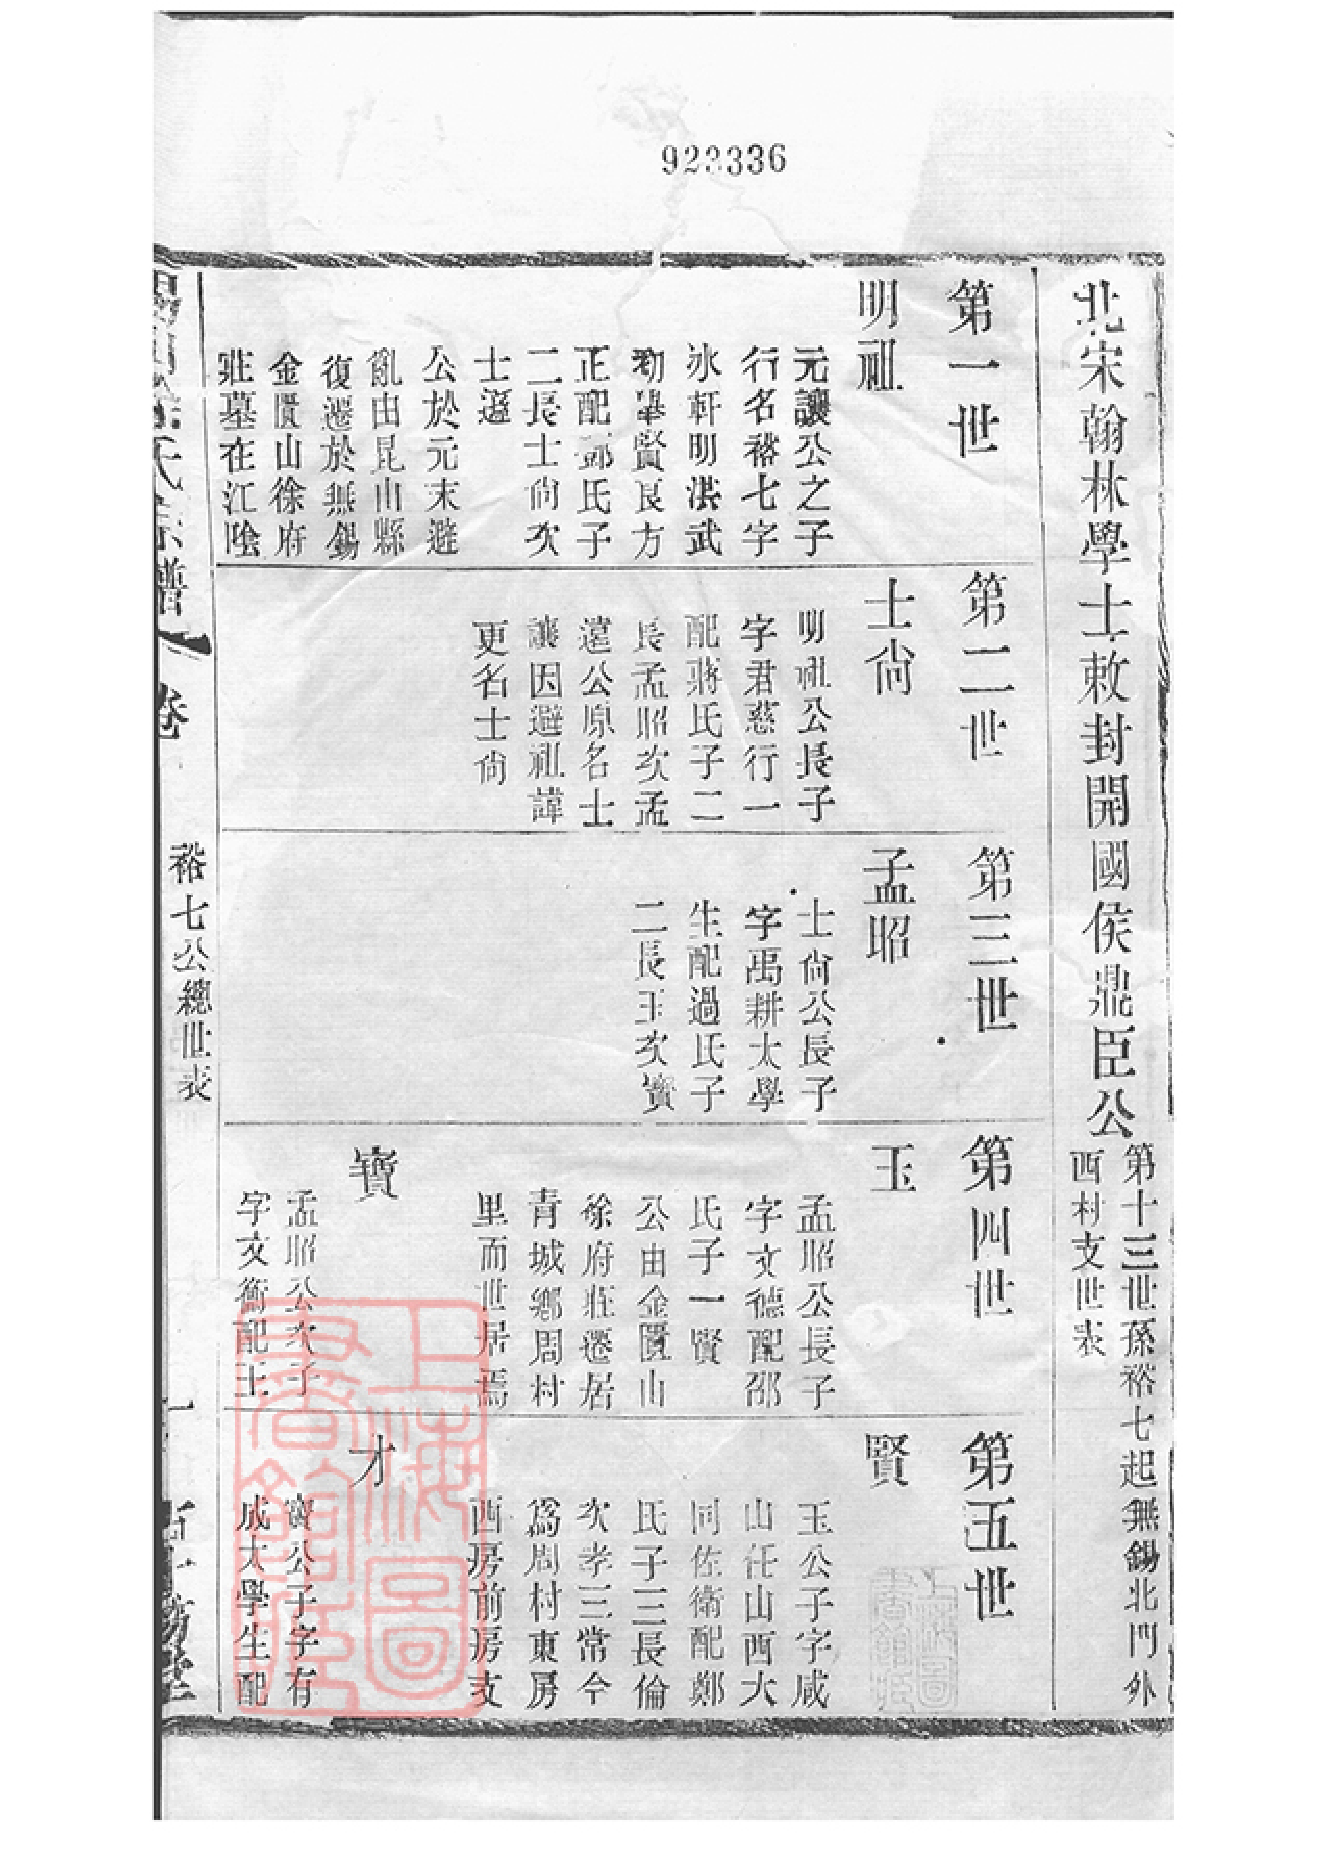 923336
北宋翰林學士敕封開國侯鼎臣公
第十三世孫裕七起無錫北門外
西村支世表
第一世
明祖
元讓公之子
行名裕七字
冰軒明洪武
初舉賢良方
正配鄧氏子
二長士尙次
士遜
公於元末避
亂由昆山縣
復遷於無錫
金匱山徐府
莊墓在江陰
第二世
士尙
明祖公長子
字君慈行一
配蔣氏子二
長孟昭次孟
遠公原名士
讓因避祖諱
更名士尙
第三世
孟昭
士尙公長子
字禹耕太學
生配過氏子
二長玉次寳
第四世
玉
孟昭公長子
字文德配邵
氏子一賢
公由金匱山
徐府莊遷居
青城鄉周村
里而世居焉
寳
孟昭公次子
字文衡配王
第五世
賢
玉公子字咸
山任山西大
同佐衛配鄭
氏子三長倫
次孝三常今
爲周村東房
西房前房支
才
寳公子字有
成太學生配
氏宗譜
卷
裕七公總世表
上海圖書館藏